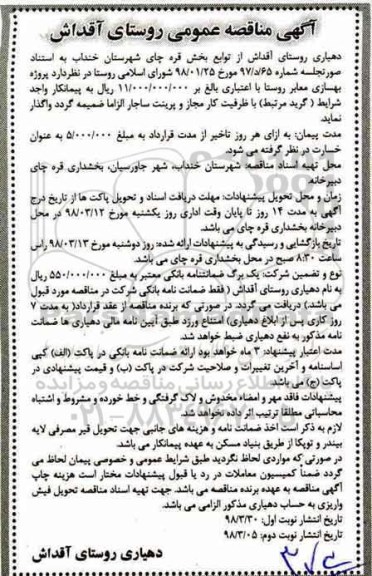 آگهی مناقصه عمومی روستای آقداش
دهیاری روستای آقداش از توابع بخش قره چای شهرستان خنداب به استناد
صورتجلسه شماره ۹۷/د/۶۵ مورخ ۹۸/۰۱/۲۵ شورای اسلامی روستا در نظردارد پروژه
بهسازی معابر روستا با اعتباری بالغ بر ۱۱/۰۰۰/۰۰۰/۰۰۰ ریال به پیمانکار واجد
شرایط ( گرید مرتبط) با ظرفیت کار مجاز و پرینت ساجار الزاما ضمیمه گردد واگذار
نماید.
مدت پیمان: به ازای هر روز تاخیر از مدت قرارداد به مبلغ ۵/۰۰۰/۰۰۰ به عنوان
خسارت در نظر گرفته می شود.
محل تهیه اسناد مناقصه شهرستان خنداب، شهر جاورسیان، بخشداری قره چای
دبیرخانه
زمان و محل تحویل پیشنهادات: مهلت دریافت اسناد و تحویل پاکت ها از تاریخ درج
آگهی به مدت ۱۴ روز تا پایان وقت اداری روز یکشنبه مورخ ۹۸/۰۳/۱۲ در محل
دبیرخانه بخشداری قره چای می باشد.
تاریخ بازگشایی و رسیدگی به پیشنهادات ارائه شده: روز دوشنبه مورخ ۹۸/۰۳/۱۳ راس
ساعت ۸:۳۰ صبح در محل بخشداری قره چای می باشد.
نوع و تضمین شرکت: یک برگ ضمانتنامه بانکی معتبر به مبلغ ۵۵۰/۰۰۰/۰۰۰ ریال
به نام دهیاری روستای آقداش ( فقط ضمانت نامه بانکی شرکت در مناقصه مورد قبول
می باشد.) دریافت می گردد. در صورتی که برنده مناقصه از عقد قرارداد( به مدت ۷
روز کاری پس از ابلاغ دهیاری) امتناع ورزد طبق آیین نامه مالی دهیاری ها ضمانت
نامه مذکور به نفع دهیاری ضبط خواهد شد.
مدت اعتبار پیشنهاد: ۳ ماه خواهد بود ارائه ضمانت نامه بانکی در پاکت (الف) کپی
اساسنامه و آخرین تغییرات و صلاحیت شرکت در پاکت (ب) و قیمت پیشنهادی در
پاکت (ج) می باشد.
پیشنهادات فاقد مهر و امضاء مخدوش و لاک گرفتگی و خط خورده و مشروط و اشتباه
محاسباتی مطلقا ترتیب اثر داده نخواهد شد.
لازم به ذکر است اخذ ضمانت نامه و هزینه های جانبی جهت تحویل قیر مصرفی لایه
بیندر و توپکا از طریق بنیاد مسکن به عهده پیمانکار می باشد.
در صورتی که مواردی لحاظ نگردید طبق شرایط عمومی و خصوصی پیمان لحاظ می
گردد ضمناً کمیسیون معاملات در رد یا قبول پیشنهادات مختار است هزینه چاپ
آگهی مناقصه به عهده برنده مناقصه می باشد. جهت تهیه اسناد مناقصه تحویل فیش
واریزی به حساب دهیاری مذکور الزامی می باشد.
تاریخ انتشار نوبت اول: ۹۸/۳/۳۰
تاریخ انتشار نوبت دوم: ۹۸/۳/۰۵
دهیاری روستای آقداش